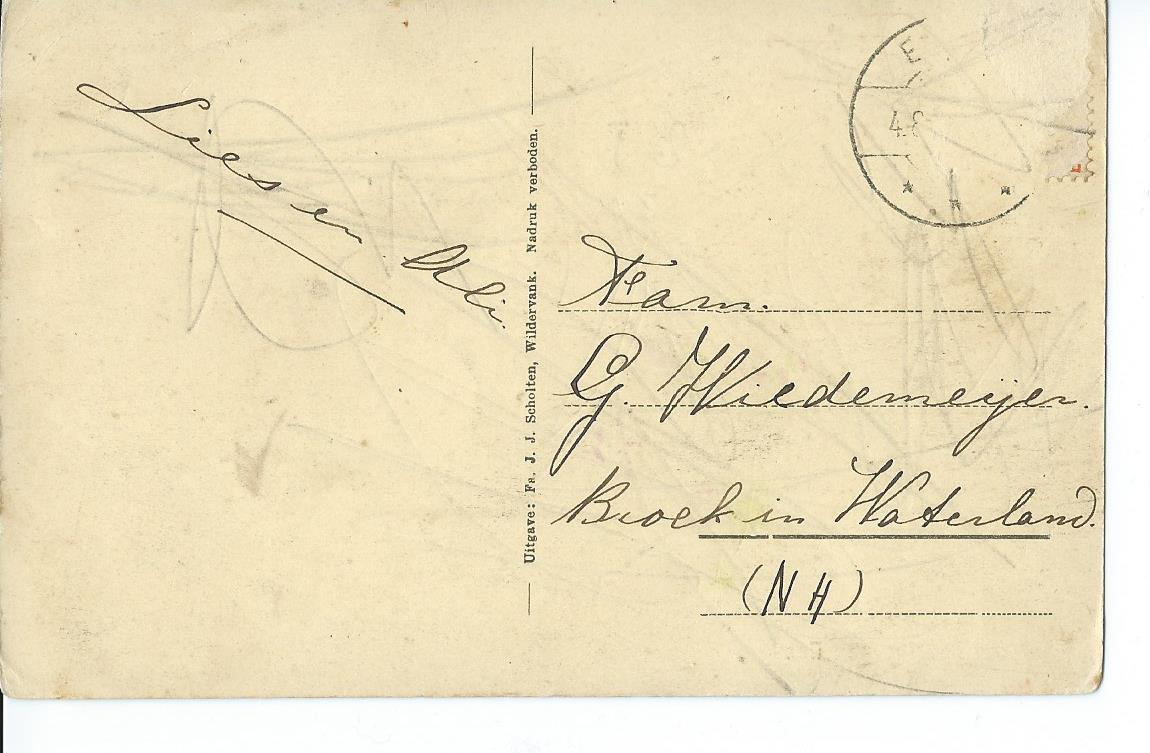 Lies en Ali.
Uitgave: Fa. J. J. Scholten, Wildervank. Nadruk verboden.
E
4.8
Fam.
G. Wiedemeijer.
Broek in Waterland.
(NH)